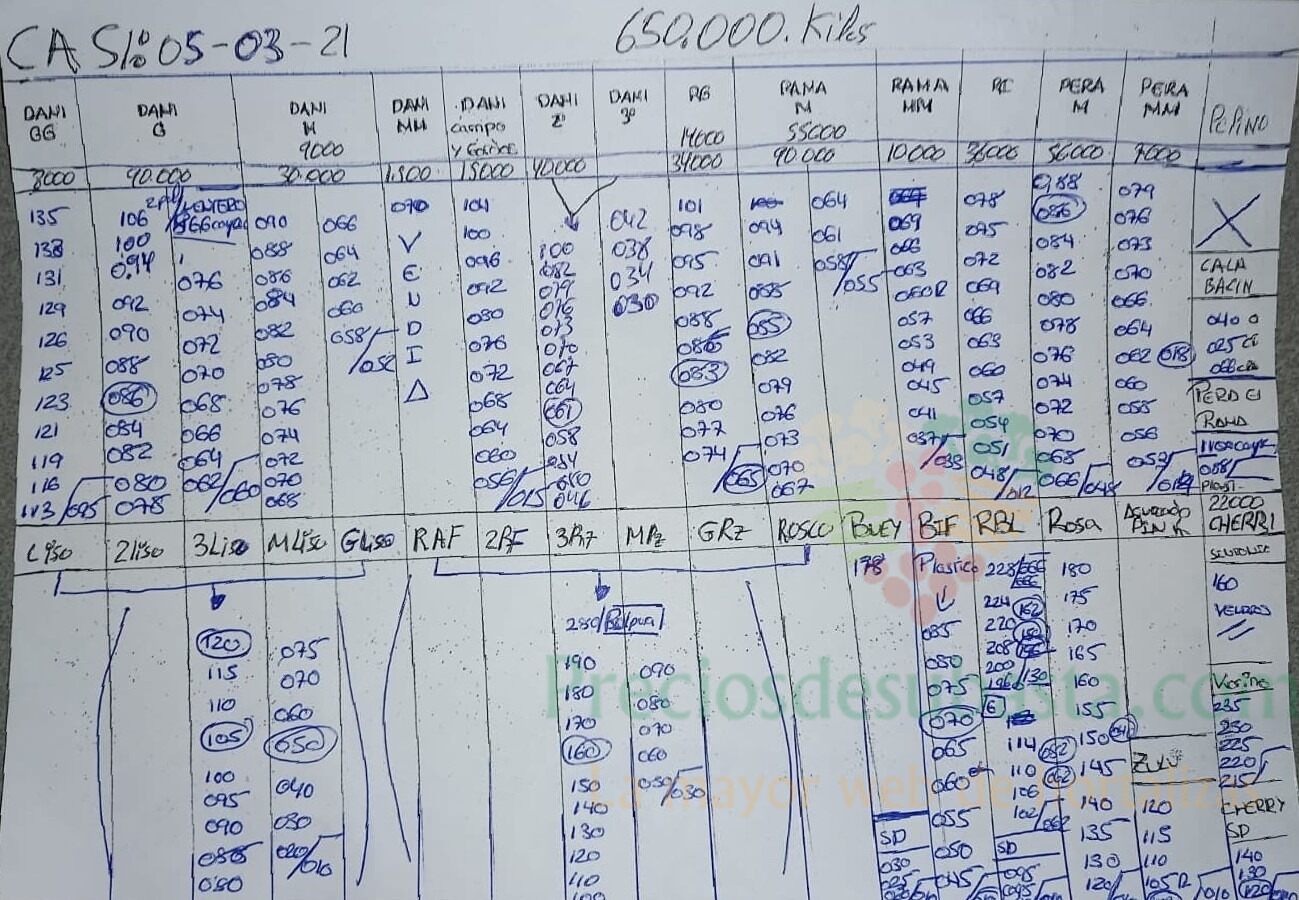 CASI: 05-03-21 650.000.Kilos
DANI GG DANI G DANI M 9000 DANI MM DANI campo DANI 2ª DANI 3ª RG 14000 RAMA M 55000 RAMA MM PERA M PERA MM PEPINO
8000 90.000 30.000 1.500 15000 40000 34000 90.000 10.000 36000 56000 7000
135 106 090 066 070 104 042 101 064 078 088 079
138 100 088 064 V 100 100 038 098 094 061 069 075 086 076
131 094 076 086 062 E 096 082 034 095 091 058/055 066 072 084 073 CALABACIN
129 092 074 084 060 N 092 079 030 092 063 069 082 070
126 090 072 082 058/052 D 080 076 088 057 066 080 066 040
125 088 070 080 I 076 073 053 063 078 064 025
123 086 068 078 A 072 070 083 082 049 060 076 062 018
121 084 066 076 068 067 080 079 045 057 074 060 PERA EN RAMA
119 082 064 074 064 064 077 076 041 054 072 058
116 080 062/060 072 060 061 074/065 073 037/033 051 070 056
113/095 078 070 056/015 058 070 048/012 068 052
068 054 067 066/048
050
046
22000
CHERRI
Liso 2Liso 3Liso MLiso GLiso RAF 2RF 3RZ MRZ GRZ ROSCO BUEY BIF RBL Rosa Asurcado PINK
178 Plastico 228/666 180 160
224 162 175 VELERO
280 085 220 170
120 075 208 165
115 070 190 090 080 200 160
110 060 180 080 075 196/130 155 235
105 050 170 070 070 6 150 230
100 040 160 060 065 114 082 145 ZULU 225
095 030 150 050/030 060 110 062 140 120 220
090 020/010 140 055 106 135 115 215
085 130 SD 050 102/062 130 110 CHERRY SD
080 120 030 045 SD 120 105R 140
110 025 095 130
100 120
Preciosdesubasta.com
La mayor web de hortalizas